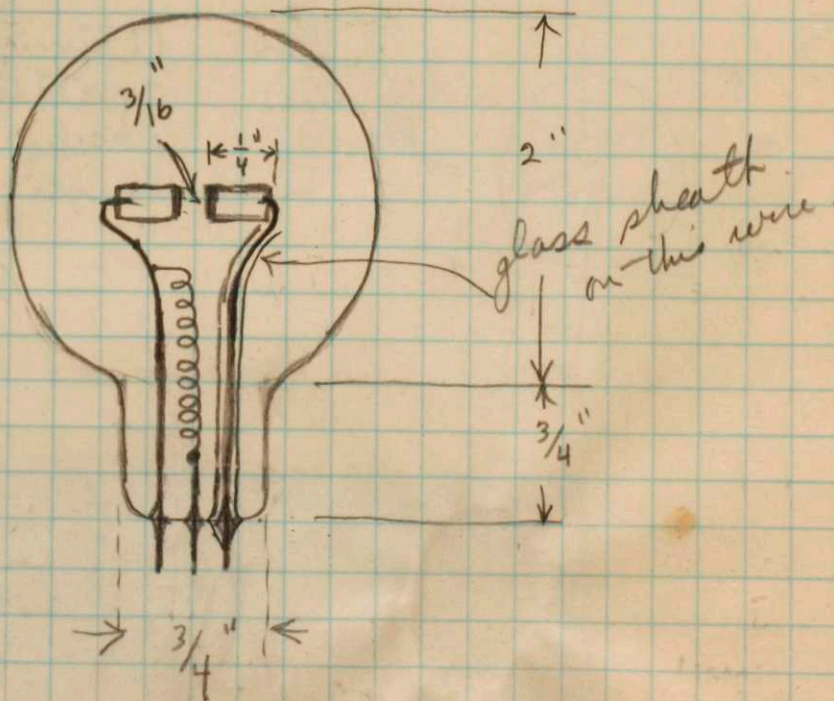 3/16"
1/4"
2"
glass sheath
on this wire
3/4"
3/4"